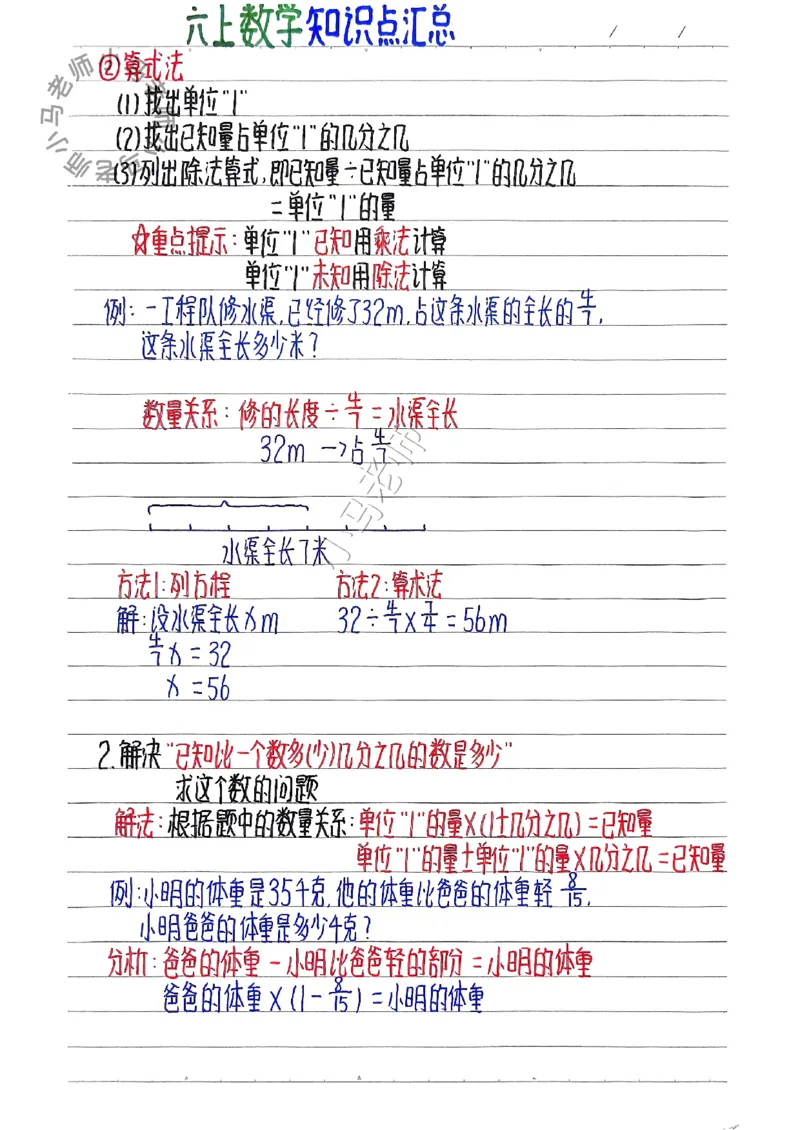 六上数学知识点汇总
②算式法
(1)找出单位"1"
(2)找出已知量占单位"1"的几分之几
(3)列出除法算式,即已知量÷已知量占单位"1"的几分之几
=单位"1"的量
☆重点提示:单位"1"已知用乘法计算
单位"1"未知用除法计算
例:一工程队修水渠,已经修了32m,占这条水渠的全长的4/7,
这条水渠全长多少米?
数量关系:修的长度÷4/7=水渠全长
32m→占4/7
水渠全长?米
方法1:列方程
方法2:算术法
解:设水渠全长xm
32÷4/7×7/4=56m
4/7x=32
x=56
2.解决"已知比一个数多(少)几分之几的数是多少"
求这个数的问题
解法:根据题中的数量关系:单位"1"的量×(1±几分之几)=已知量
单位"1"的量±单位"1"的量×几分之几=已知量
例:小明的体重是35千克,他的体重比爸爸的体重轻8/15,
小明爸爸的体重是多少千克?
分析:爸爸的体重-小明比爸爸轻的部分=小明的体重
爸爸的体重×(1-8/15)=小明的体重
小马老师
小马老师